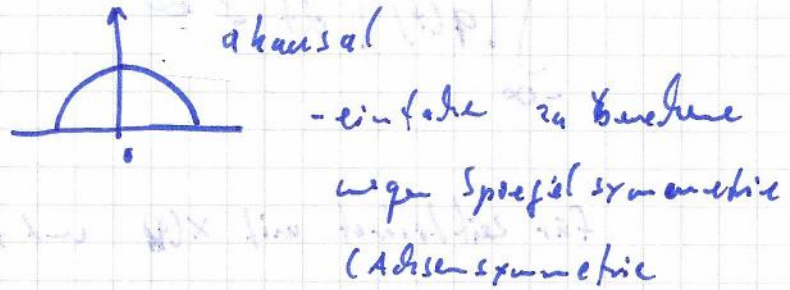 akausal
- einfacher zu berechnen
wegen Spiegelsymmetrie
(Achsensymmetrie
0